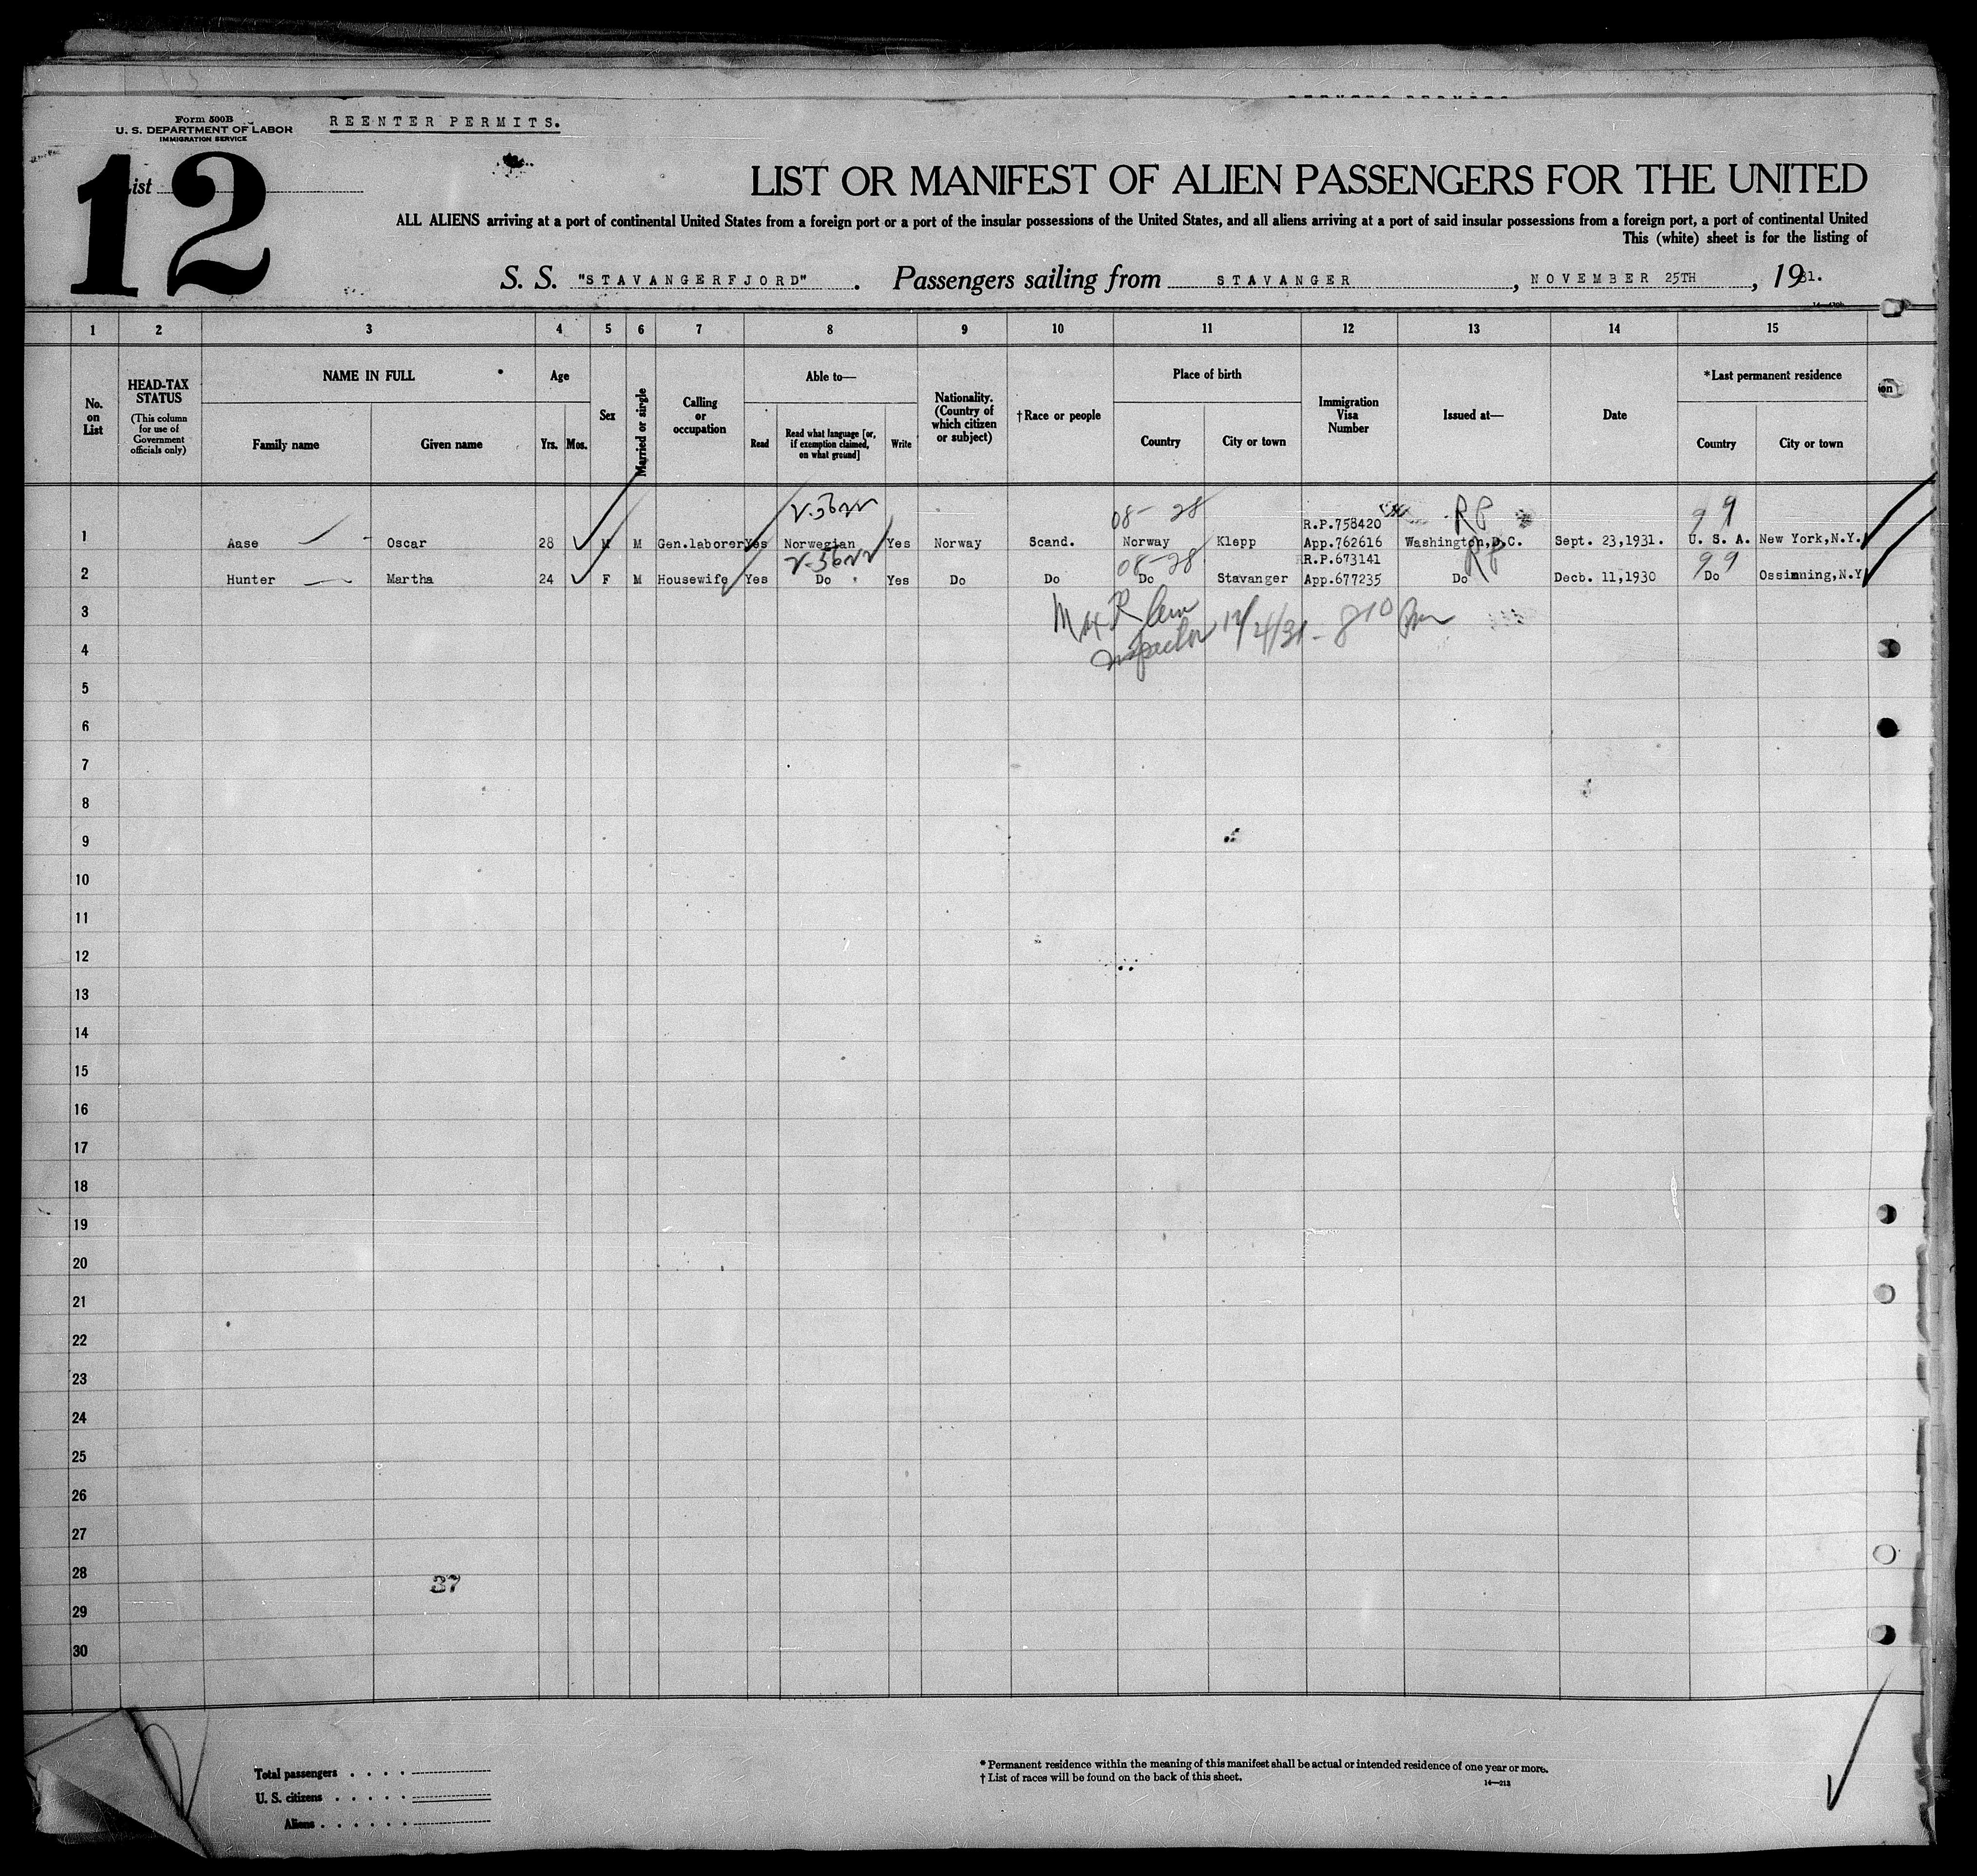 Form 500B
U. S. DEPARTMENT OF LABOR
IMMIGRATION SERVICE
REENTER PERMITS.
List
12
LIST OR MANIFEST OF ALIEN PASSENGERS FOR THE UNITED
ALL ALIENS arriving at a port of continental United States from a foreign port or a port of the insular possessions of the United States, and all aliens arriving at a port of said insular possessions from a foreign port, a port of continental United
This (white) sheet is for the listing of
S. S. "STAVANGERFJORD". Passengers sailing from STAVANGER, NOVEMBER 25TH, 1931.
1 2 3 4 5 6 7 8 9 10 11 12 13 14 15
No. on List
HEAD-TAX STATUS (This column for use of Government officials only)
NAME IN FULL
Family name
Given name
Age
Yrs. Mos.
Sex
Married or single
Calling or occupation
Able to—
Read
Read what language [or, if exemption claimed, on what ground]
Write
Nationality. (Country of which citizen or subject)
†Race or people
Place of birth
Country
City or town
Immigration Visa Number
Issued at—
Date
*Last permanent residence
Country
City or town
08-28 RP 99
R.P.758420
1 Aase Oscar 28 M M Gen.laborer Yes Norwegian Yes Norway Scand. Norway Klepp App.762616 Washington,D.C. Sept. 23,1931. U. S. A. New York,N.Y.
08-28 R.P.673141 RP 99
2 Hunter Martha 24 F M Housewife Yes Do Yes Do Do Do Stavanger App.677235 Do Decb. 11,1930 Do Ossinning,N.Y
3
Inspector 12/4/31 - 8 10 Pm
4
5
6
7
8
9
10
11
12
13
14
15
16
17
18
19
20
21
22
23
24
25
26
27
28
37
29
30
Total passengers
U. S. citizens
Aliens
* Permanent residence within the meaning of this manifest shall be actual or intended residence of one year or more.
† List of races will be found on the back of this sheet.
14—213